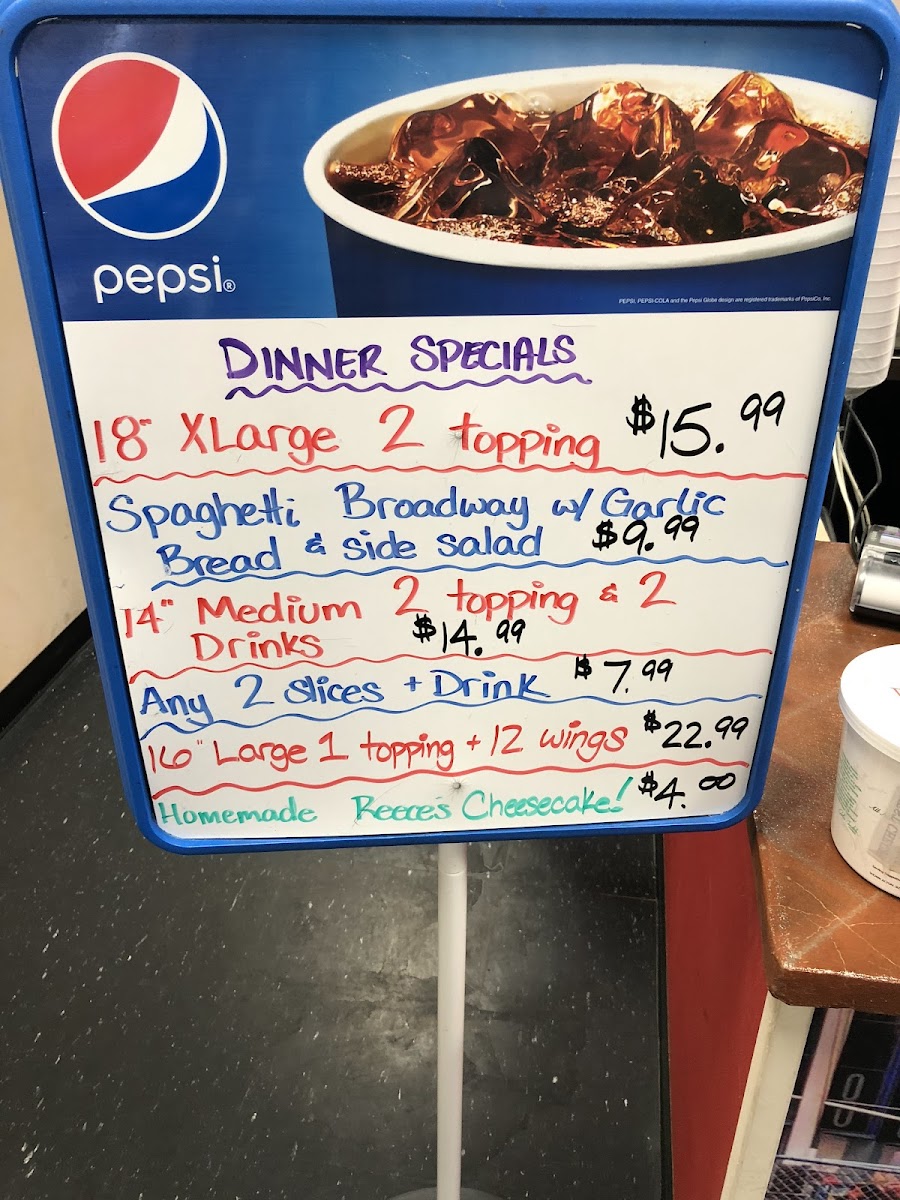 pepsi®
PEPSI, PEPSI-COLA and the Pepsi Globe design are registered trademarks of PepsiCo, Inc.
DINNER SPECIALS
18" XLarge 2 topping $15.99
Spaghetti Broadway w/ Garlic
Bread & side salad $9.99
14" Medium 2 topping & 2
Drinks $14.99
Any 2 slices + Drink $7.99
16" Large 1 topping + 12 wings $22.99
Homemade Reece's Cheesecake! $4.00